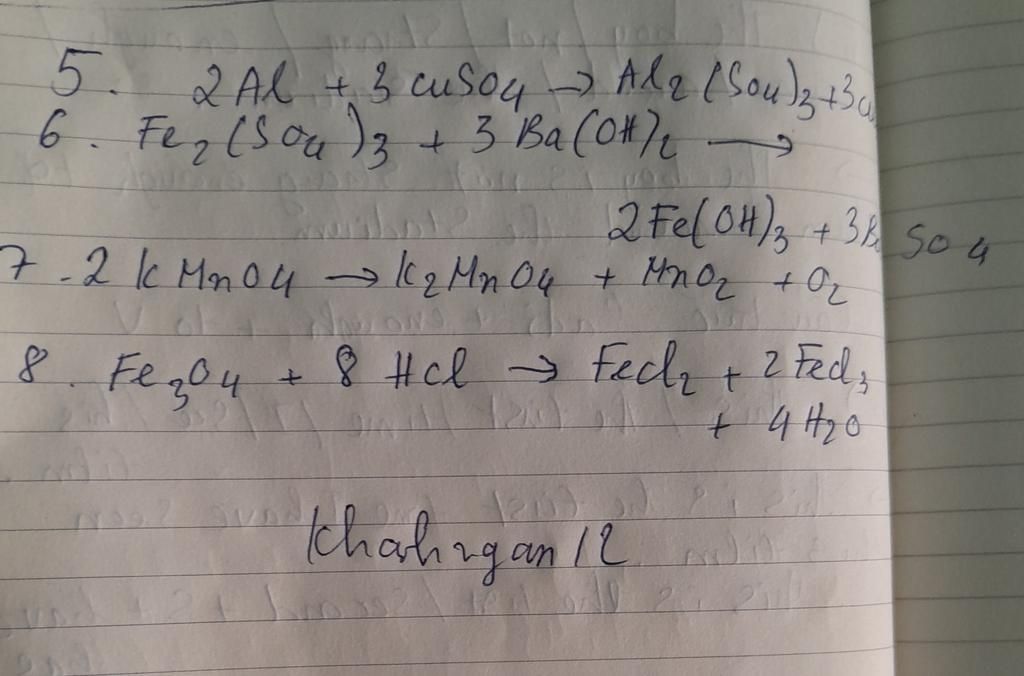 5. 2Al + 3CuSO4 → Al2(SO4)3 + 3Cu
6. Fe2(SO4)3 + 3Ba(OH)2 →
2Fe(OH)3 + 3BaSO4
7. 2KMnO4 → K2MnO4 + MnO2 + O2
8. Fe3O4 + 8HCl → FeCl2 + 2FeCl3
+ 4H2O